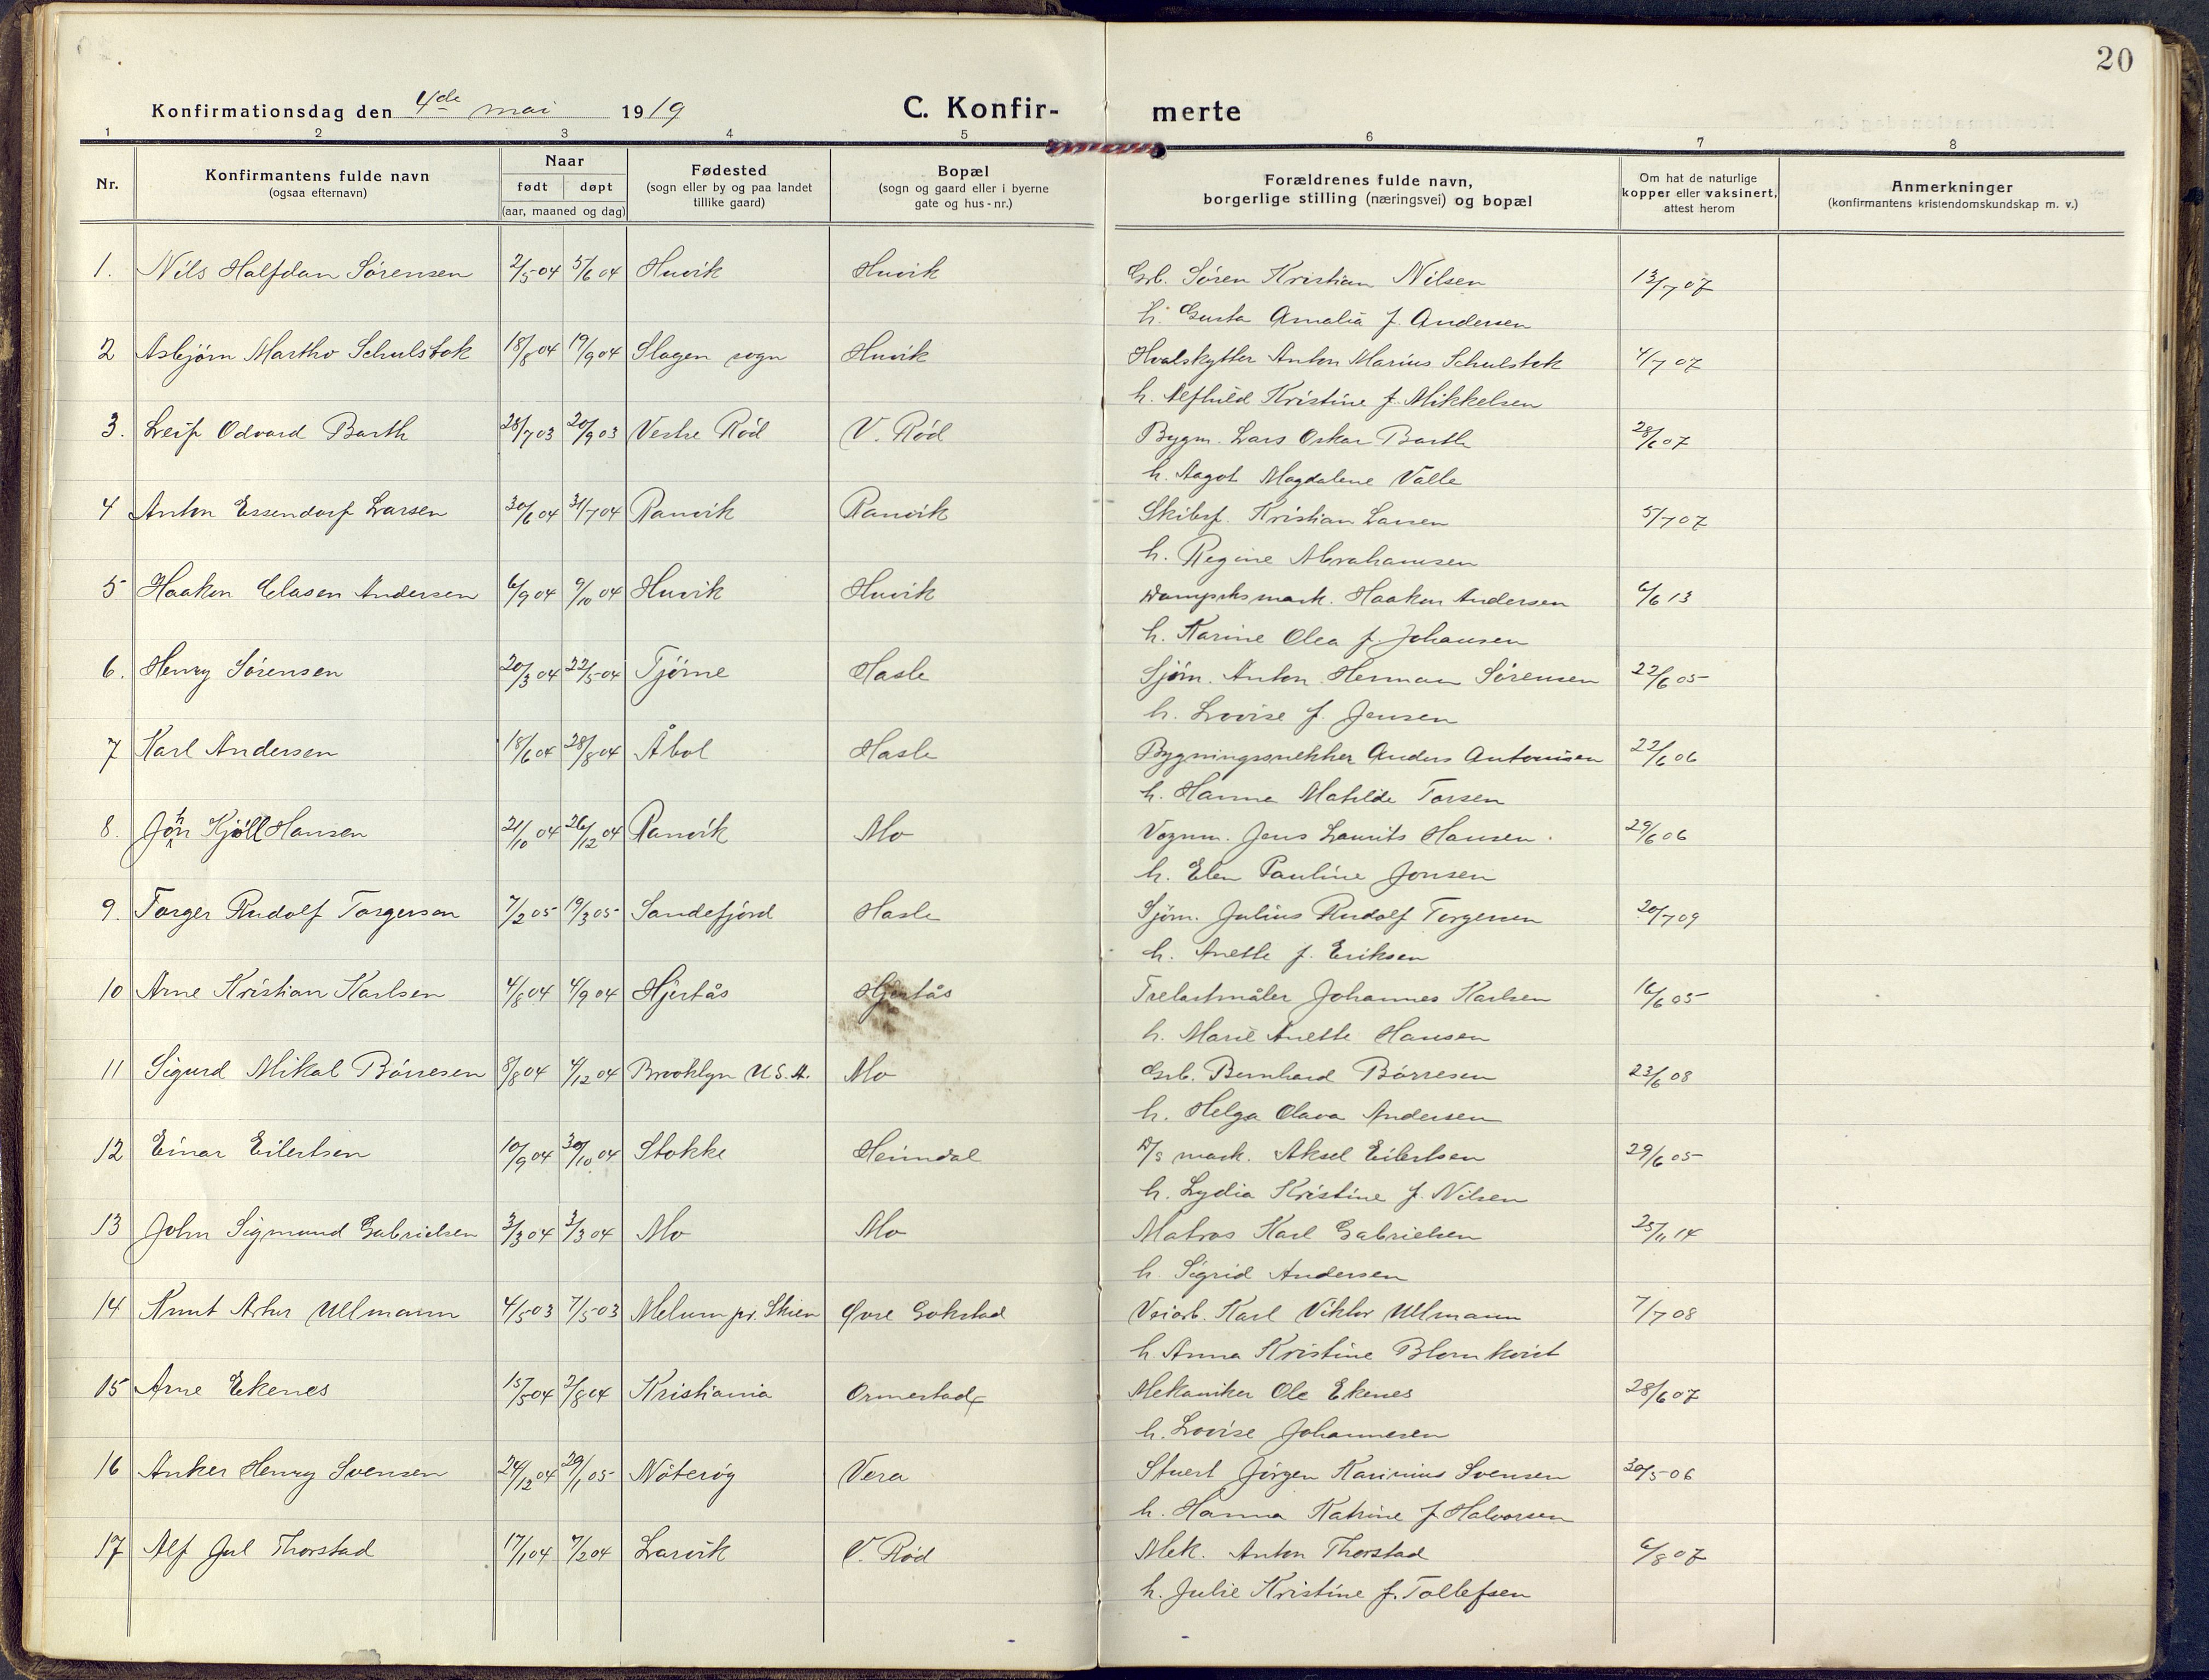 20
Konfirmationsdag den 4de mai 1919 C. Konfirmerte
1 2 3 4 5 6 7 8
Nr. Konfirmantens fulde navn (ogsaa efternavn) Naar født døpt (aar, maaned og dag) Fødested (sogn eller by og paa landet tillike gaard) Bopæl (sogn og gaard eller i byerne gate og hus-nr.) Forældrenes fulde navn, borgerlige stilling (næringsvei) og bopæl Om hat de naturlige kopper eller vaksinert, attest herom Anmerkninger (konfirmantens kristendomskundskap m. v.)
1. Nils Halfdan Sørensen 2/5 04 5/6 04 Huvik Huvik Grb. Søren Kristian Nilsen 13/7 07
h. Gusta Amalia f. Andersen
2 Asbjørn Martho Schulstok 18/8 04 19/9 04 Slagen sogn Huvik Hvalskytter Anton Marius Schulstok 4/7 07
h. Alfhild Kristine f. Mikkelsen
3. Leif Odvard Barth 28/7 03 20/9 03 Vestre Rød V. Rød Bygm. Lars Oskar Barth 28/6 07
h. Aagot Magdalene Valle
4 Anton Essendorf Larsen 30/6 04 31/7 04 Ranvik Ranvik Skibsf. Kristian Larsen 5/7 07
h. Regine Abrahamsen
5 Haakon Clasen Andersen 6/9 04 9/10 04 Huvik Huvik Dampsksmask. Haakon Andersen 6/6 13
h. Karine Olea f. Johansen
6. Henry Sørensen 20/3 04 22/5 04 Tjøme Hasle Sjøm. Anton Herman Sørensen 22/6 05
h. Lovise f. Jensen
7 Karl Andersen 18/6 04 28/8 04 Åbol Hasle Bygningssnekker Anders Antonisen 22/6 06
h. Hanna Matilde Torsen
8. John Kjøll Hansen 21/10 04 26/12 04 Ranvik Mo Vognm. Jens Laurits Hansen. 29/6 06
h. Elen Pauline Jonsen
9. Torger Rudolf Torgersen 7/2 05 19/3 05 Sandefjord Hasle Sjøm. Julius Rudolf Torgersen 20/7 09
h. Anette f. Eriksen
10 Arne Kristian Karlsen 4/8 04 4/9 04 Hjertås Hjertås Trelastmåler Johannes Karlsen 16/6 05
h. Marie Anette Hansen
11 Sigurd Mikal Børresen 8/8 04 4/12 04 Brooklyn U.S.A. Mo Grb. Bernhard Børresen 23/6 08
h. Helga Olava Andersen
12 Einar Eilertsen 10/9 04 30/10 04 Stokke Heimdal D/s mask. Aksel Eilertsen 29/6 05
h. Lydia Kristine f. Nilsen
13 John Sigmund Gabrielsen 3/3 04 3/3 04 Mo Mo Matros Karl Gabrielsen 25/11 14
h. Sigrid Andersen
14 Knut Artur Ullmann 4/5 03 7/5 03 Melum pr. Skien Øvre Gokstad Veiarb. Karl Viktor Ullmann 7/7 08
h. Anna Kristine Blomkvist
15 Arne Ekenes 15/5 04 2/8 04 Kristiania Ormestad Mekaniker Ole Ekenes 28/6 07
h. Lovise Johannesen
16 Anker Henry Svensen 24/12 04 29/1 05 Nøterøy Vera Stuert Jørgen Karinius Svensen 30/5 06
h. Hanna Katrine f. Halvorsen
17 Alf Jul Thorstad 17/1 04 7/2 04 Larvik V. Rød Mek. Anton Thorstad 6/8 07
h. Julie Kristine f. Tollefsen